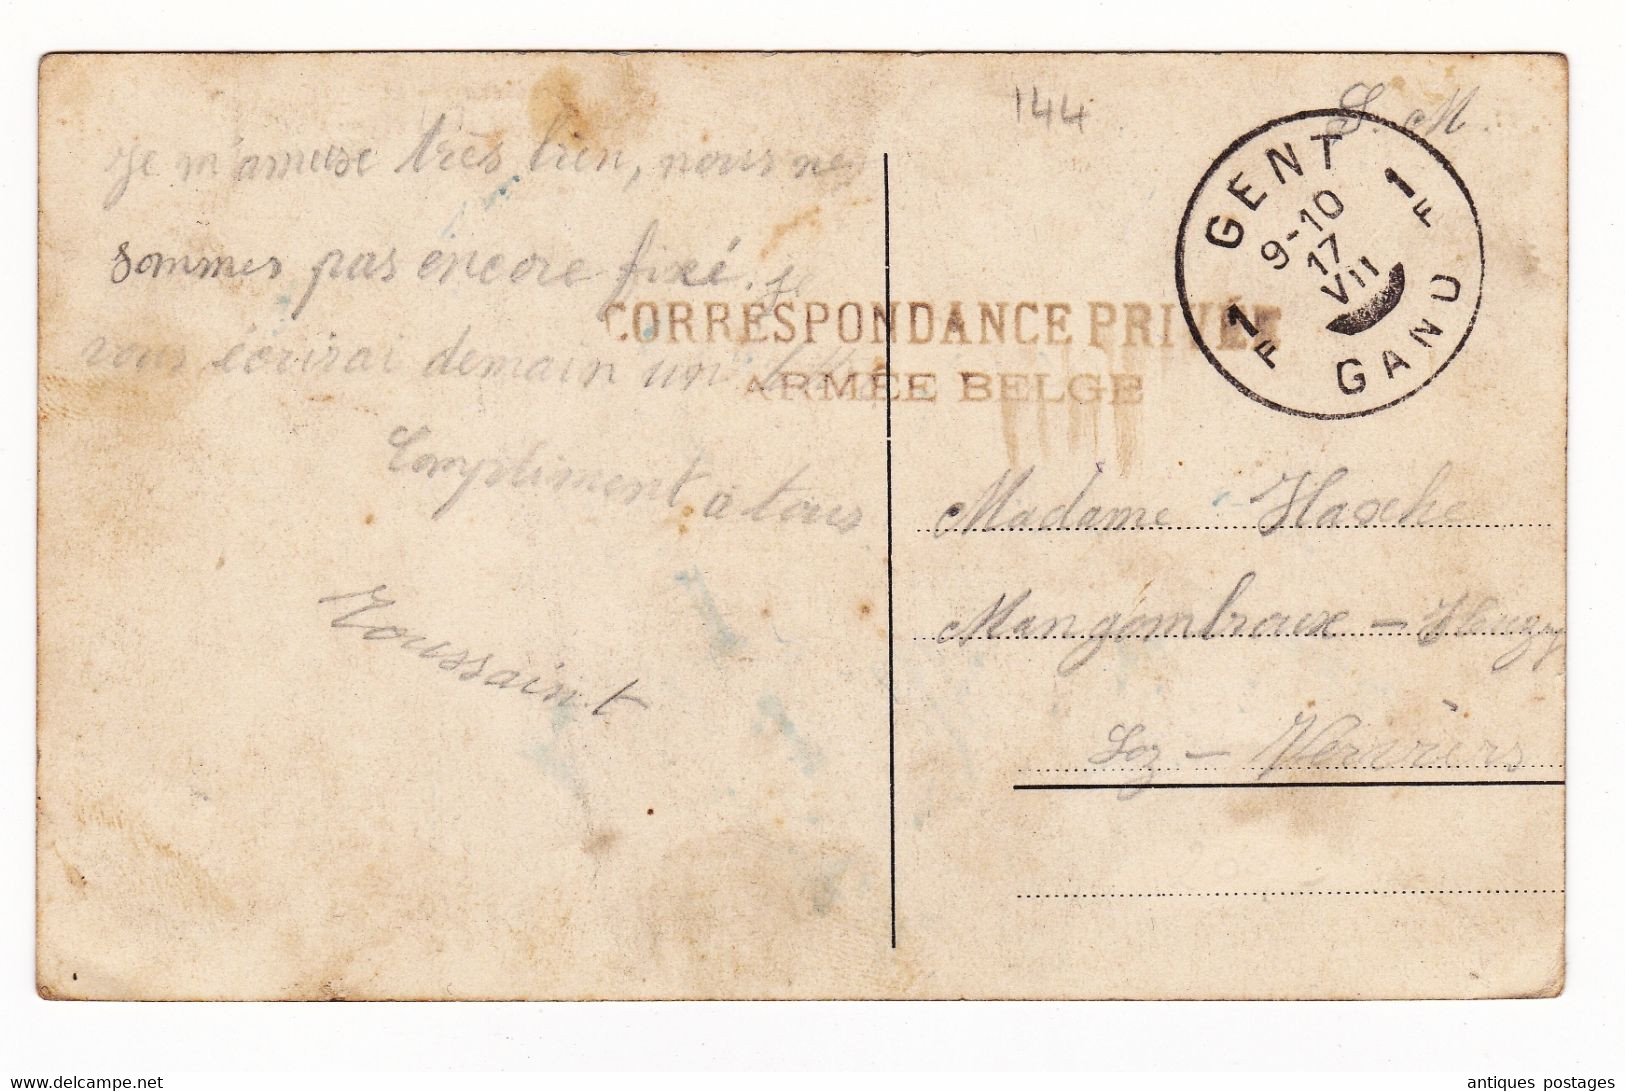 144
S. M.
Je m'amuse très bien, nous ne
sommes pas encore fixé. je
vous écrirai demain un
Compliment à tous
Toussaint
CORRESPONDANCE PRIVÉE
ARMÉE BELGE
GENT
1 F
9-10
17
VII
1 F
GAND
Madame Hasche
Mangombroux - Heuzy
Lez - Verviers
delcampe.net
antiques postages